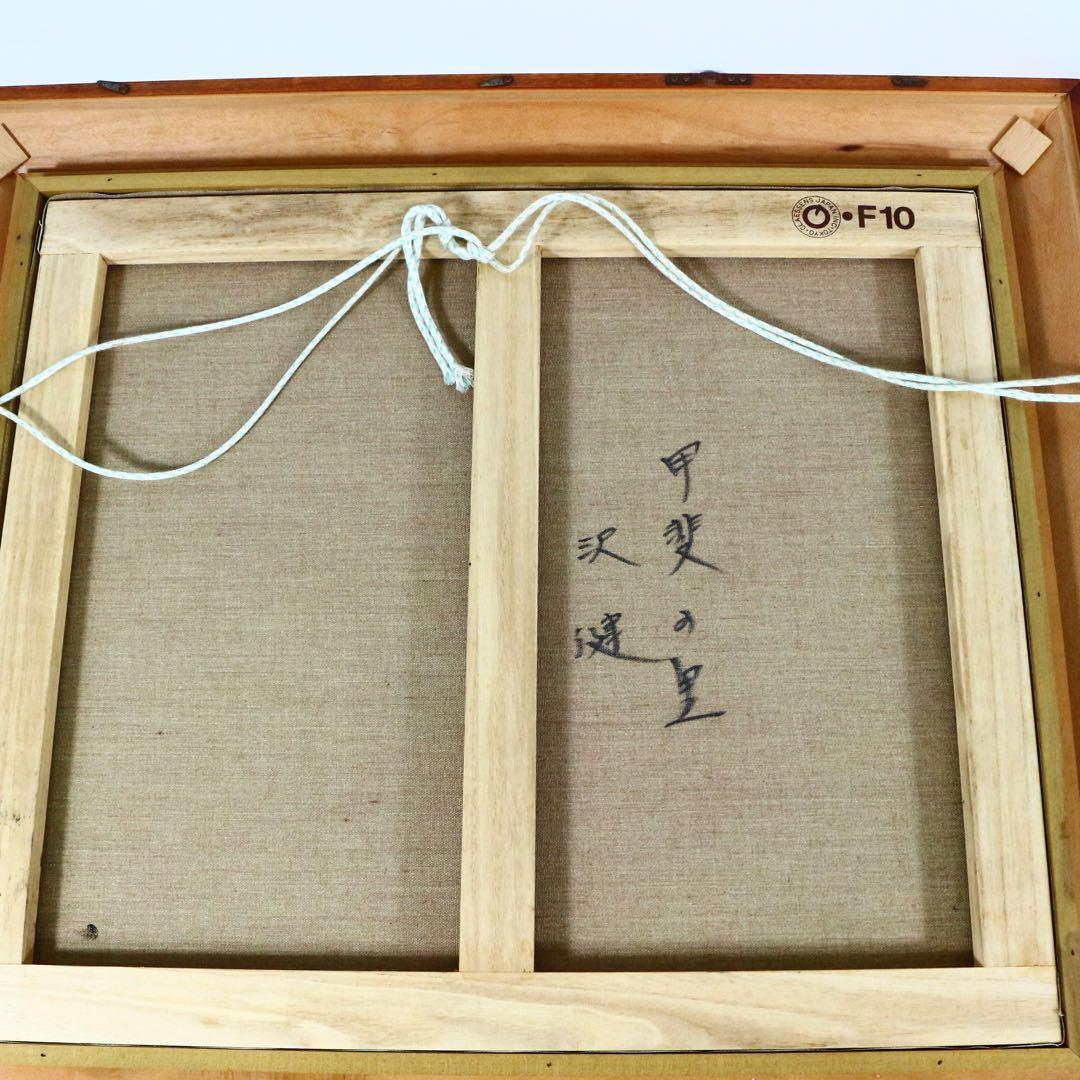 CLAESSENS JAPAN INC TOKYO
•F10
甲斐の里
沢健